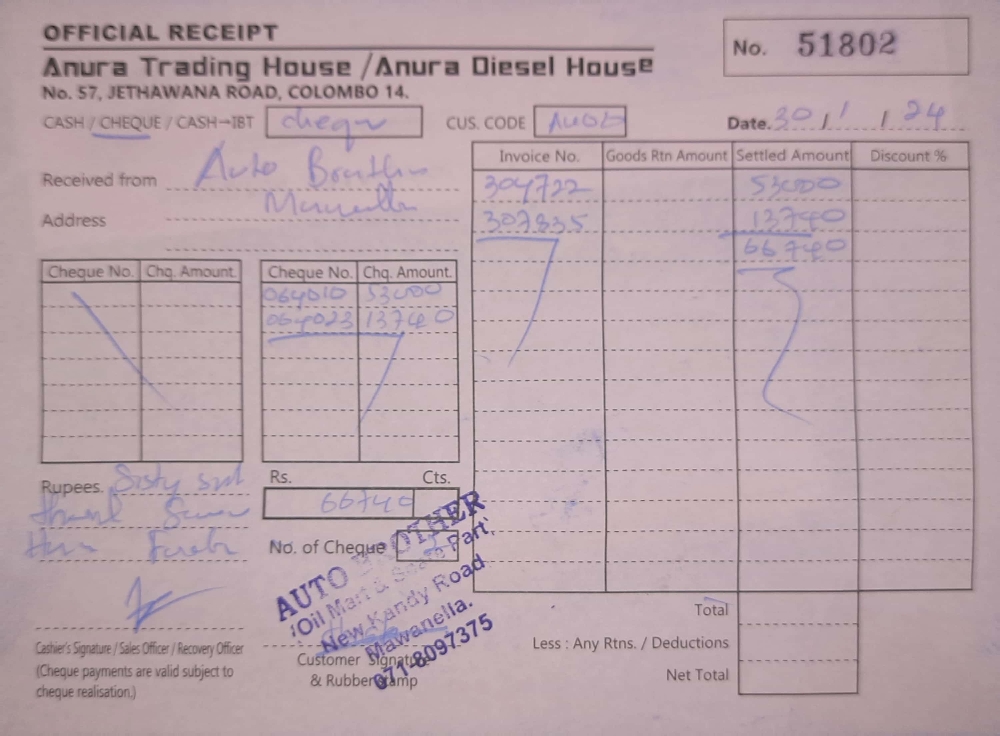 OFFICIAL RECEIPT
No. 51802
Anura Trading House / Anura Diesel House
No. 57, JETHAWANA ROAD, COLOMBO 14.
CASH / CHEQUE / CASH→IBT cheqn CUS. CODE Date. 30 / 1 / 24
Received from Auto
Address
Invoice No. Goods Rtn Amount Settled Amount Discount %
304722 53000
307835 13740
66740
Cheque No. Chq. Amount Cheque No. Chq. Amount
064010 53000
064023 13740
Rupees.
Rs. Cts.
66740
No. of Cheque
AUTO BROTHER
Oil Mart & Spare Part
New Kandy Road
Mawanella.
071-8097375
Total
Less : Any Rtns. / Deductions
Net Total
Cashier's Signature / Sales Officer / Recovery Officer
(Cheque payments are valid subject to
cheque realisation.)
Customer Signature
& Rubber Stamp